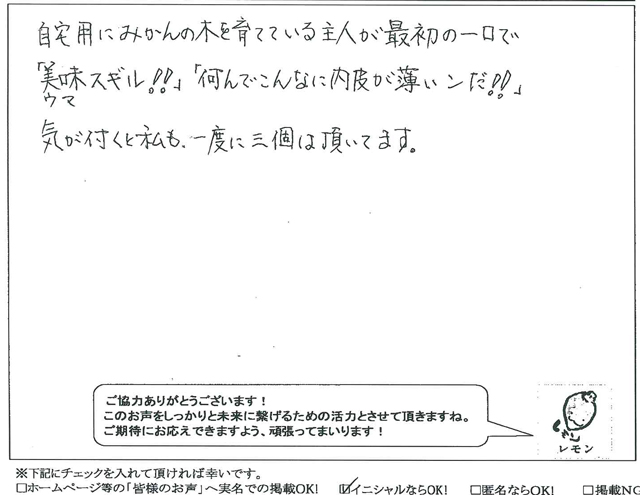 自宅用にみかんの木を育てている主人が最初の一口で
「美味スギル!!」「何んでこんなに内皮が薄いンだ!!」
ウマ
気が付くと私も、一度に三個は頂いてます。
ご協力ありがとうございます!
このお声をしっかりと未来に繋げるための活力とさせて頂きますね。
ご期待にお応えできますよう、頑張ってまいります!
レモン
※下記にチェックを入れて頂ければ幸いです。
□ホームページ等の「皆様のお声」へ実名での掲載OK! ☑イニシャルならOK! □匿名ならOK! □掲載NG